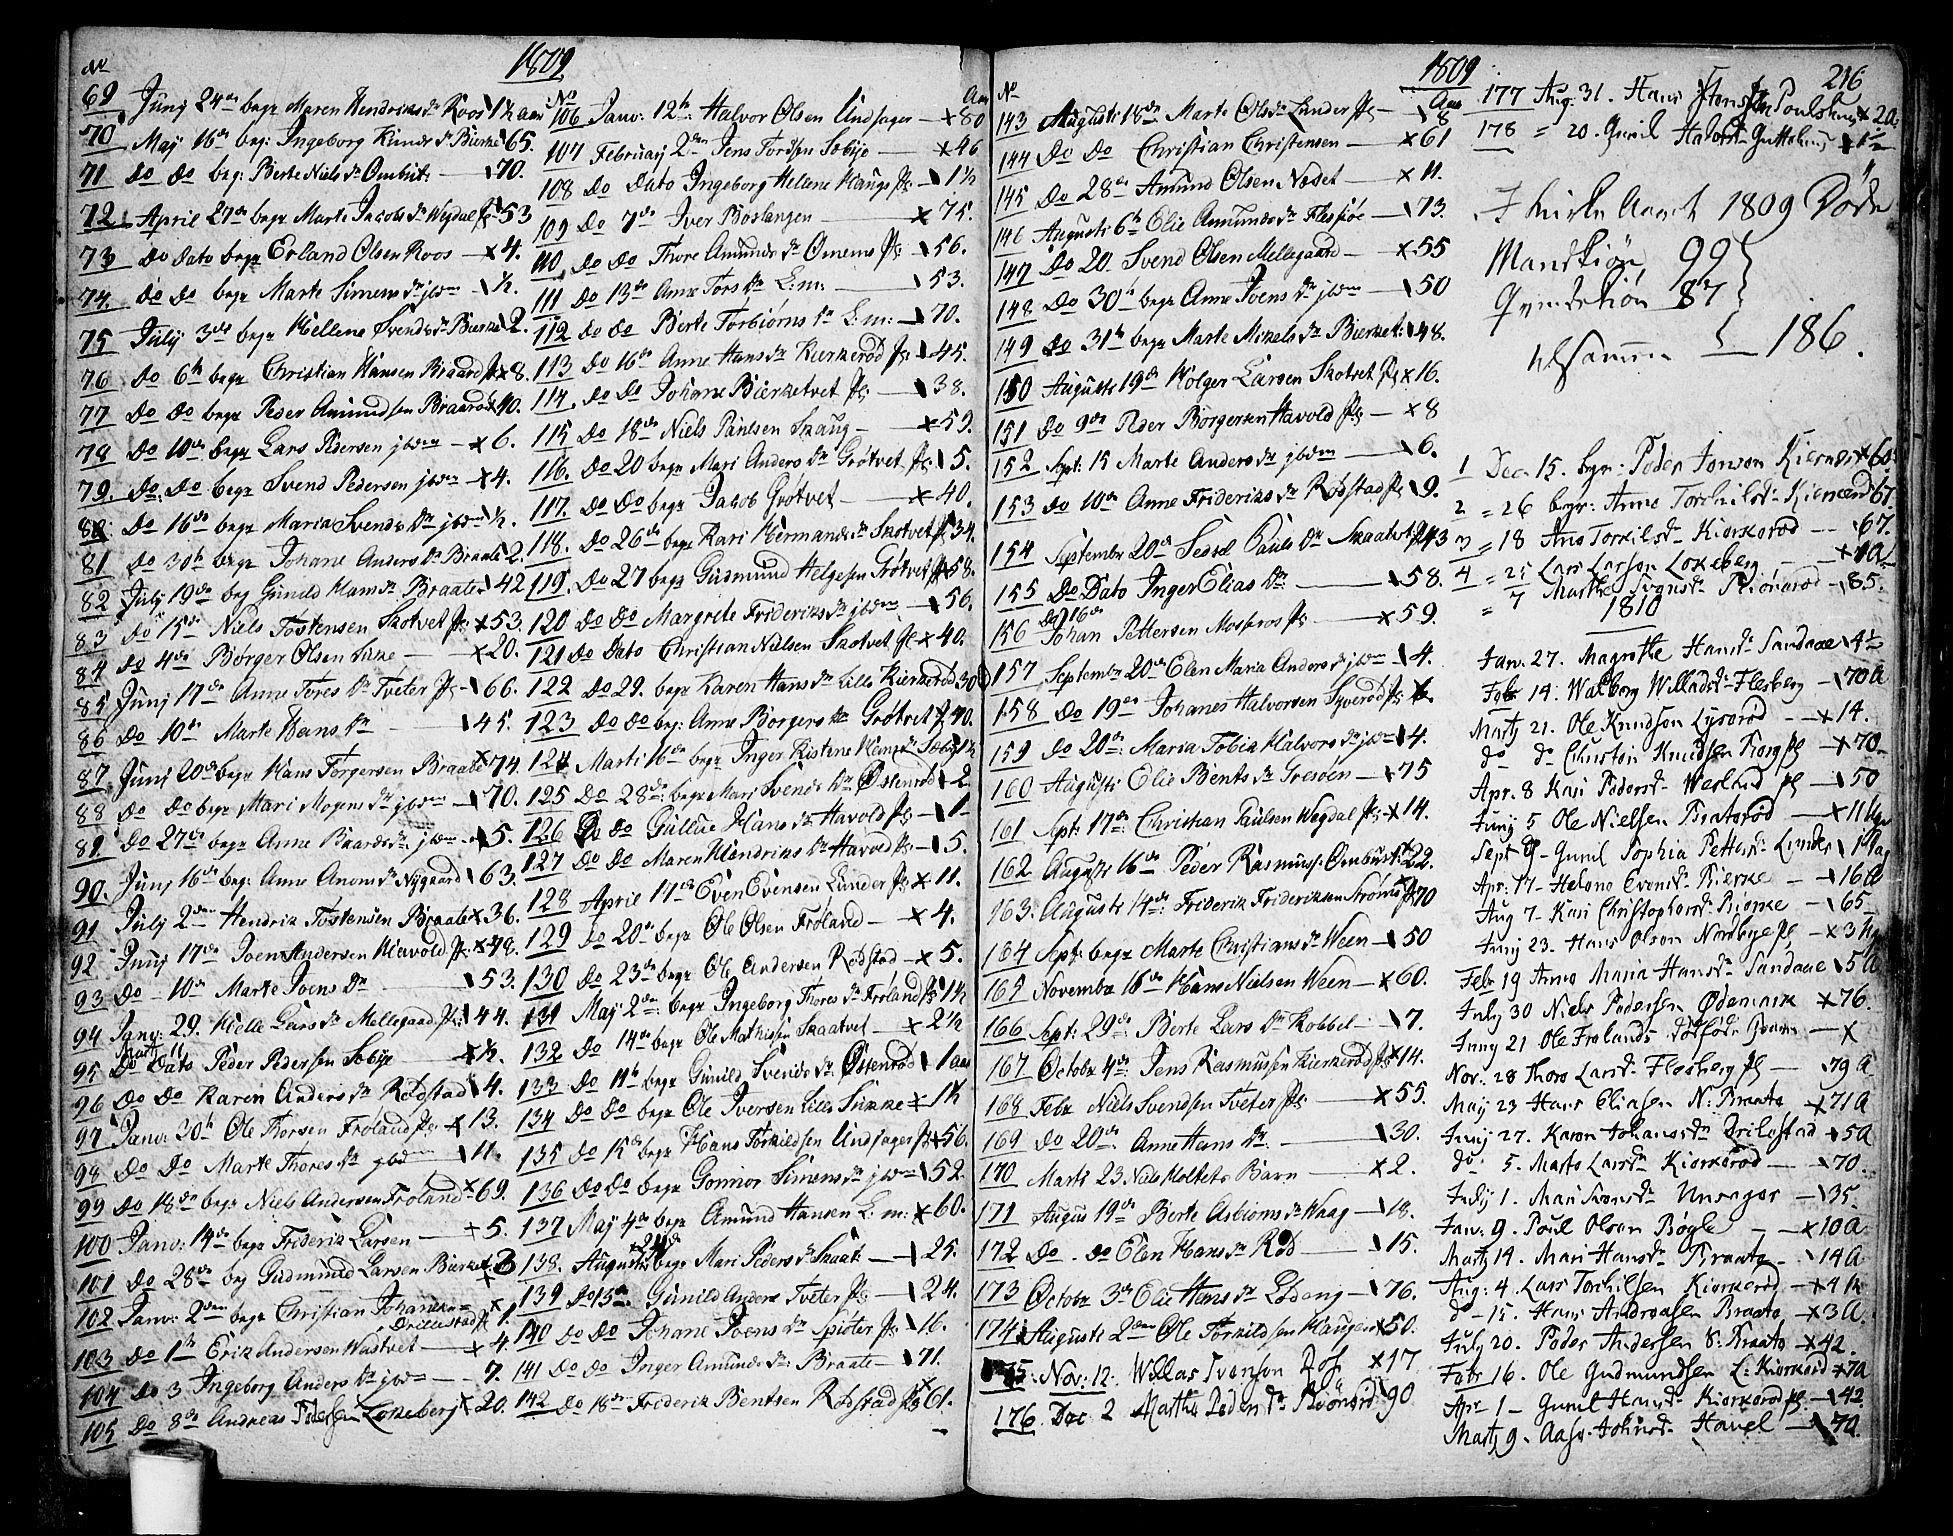 No
1809
69 Junj 24de begr Maren Hendrichs Dr Roos 1½ aar
70 Maj 16de begr: Ingeborg Knuds Dr Bierke 65.
71 Do Do begr: Berte Niels Dr Ombut: 70.
72 April 27de begr Marte Jacobs Dr Wegdal Pl 53
73 Do Dato begr Erland Olsen Roos — x 4.
74. do Do begr Marte Simens Dr ibdm ½.
75 Julj 3de begr Hellene Svends Dr Bierke 2.
76 Do 6te begr Christian Hansen Braard Pl x 8.
77 Do Do begr Peder Amundsen Braarud x 40.
78 Do 10de begr Lars Pedersen ibdm — x 6.
79. Do. Do begr Svend Pedersen ibdm x 4.
80 Do 16de begr Maria Svends Dr ibdm ½.
81 Do 30te begr Johane Anders Dr Braate 2.
82 Julj 19de beg Gunild Hans Dr Braate 42
83 Do 15de Niels Tostensen Skotvet Pl x 53.
84 do 4de Børger Olsen Sikke — x 20.
85 Junj 17de Anne Tores Dr Tveter Pl — 66.
86 Do 10de Marte Hans Dr — 45.
87 Junj 20de begr Hans Torgersen Braate x 74.
88 Do Do begr Mari Mogens Dr ibdm — 70.
89. Do 27de begr Anne Baards Dr. ibdm — 5.
90. Junj 16de beg: Anne Anons Dr Nygaard 63.
91 Julj 2den Hendrik Tostensen Braate x 36.
92 Junj 17de Joen Andersen Havold Pl x 48.
93 Do 10de Marte Joens Dr — 53.
94 Janv: 29. Kielle Lars Dr Mellegaard Pl. 44.
Marti 11
95 Do Dato Peder Pedersen Sobye — x ½.
96 Do Do Karen Anders Dr Rødstad 4.
97 Janv: 30te Ole Thorsen Frøland Pl x 13.
98 Do Do Marte Thores Dr ibdm — 11.
99 Do 18de begr Niels Andersen Frøland x 69.
100 Janv: 14de begr Friderik Larsen — + 5.
101 Do 28de beg Gudmund Larsen Bierke
102 Janv: 2den begr Christian Johansen x
Drillestad Pl 1.
103 Do 1te Erik Andersen Wastvet — x 4.
104 Do 3 Ingeborg Anders Dr ibdm — 7.
105 Do 8de Andreas Pedersen Lokeberg x 20.
No
Aar
106 Janv: 12te: Halvor Olsen Undsager — x 80
107 Februarj 2den Jens Tordsen Sobije — x 46
108 Do Dato Ingeborg Hellene Haugs Pl — 1½
109 Do 7de Iver Boslangen — x 75.
110. Do Do Thore Amunds Dr Omens Pl 56.
111 Do 13de Anne Tors Dr L: m: — 53.
112 Do Do Berte Torbiørns Dr L: m: — 70.
113 Do 16de Anne Hans Dr Kierkerød Pl 45.
114. do Do Johane Bierketvet Pl — 38.
115 Do 18de Niels Paulsen Skaug — x 59.
116. Do 20 begr Mari Anders Dr Grøtvet Pl. 5.
117. Do Do begr Jacob Grøtvet — x 40.
118. Do 26de begr Kari Hermands Dr Skotvet Pl 34.
119. Do 27 begr Gudmund Helgesen Grøtvet Pl x 58.
120 Do Do Margrete Frideriks Dr ibdm — 56.
121 Do Dato Christian Nielsen Skotvet Pl x 40.
122 Do 29. begr Karen Hans Dr Lille Kierkerød 30
123 Do Do beg: Anne Børgers Dr Grøtvet Pl 40.
124 Marti 16de begr Inger Kistene Hans Dr Sobije 1½
125 Do 28de: begr Mari Svends Dr Østenrød 2
126 Do Do Gullue Hans Dr Havold Pl — 1
127 Do Do Maren Hendriks Dr Havold Pl — 5.
128 Aprie 17de Even Evensen Lunder Pl x 11.
129 Do 20de begr Ole Olsen Frøland — x 4.
130 Do 23de begr Ole Andersen Rødstad — x 5.
131 Maj 2den begr Ingeborg Thores Dr Frøland Pl 1½
132 Do 14de begr Ole Mathisen Skaatvet — x 2½
133 Do 11te begr Gunild Svends Dr Østenrød 1 aar
134 Do Do begr Ole Iversen Lille Sikke x 1½
135 Do 15de begr Hans Torkildsen Undsager Pl x 56.
136 Do Do begr Gonnor Simens Dr ibdm 52.
137 Maj 4de begr Amund Hansen L: m: x 60.
138. Augusti 24de begr Mari Peders Dr Skaate — 25.
139 Do 15de Gunild Anders Tveter Pl — 24.
140 Do Do Johane Joens Dr Spioter Pl 16.
141 Do Do Inger Amunds Dr: Braate — 71.
142 Do 18de Friderik Bentsen Rødstad Pl x 61.
1809
No
Aar
143 Augusti 18de Marte Ols Dr Lunder Pl — 8
144 Do Do Christian Christensen — x 61
145 Do 28de Amund Olsen Nesset — x 11.
146 Augusti 6te Elie Amunds Dr Flesiøe — 73.
147 Do 20. Svend Olsen Mellegaard — x 55
148 Do 30te begr Anne Joens Dr ibdm — 50
149 Do 31te begr Marte Mikels Dr Bierket: 48.
150 Augusti 19de Holger Larsen Skotvet Pl x 16.
151 Do 9de Peder Borgersen Havold Pl — x 8
152 Sept: 15 Marte Anders Dr ibdm — 6.
153 Do 10de Anne Frideriks Dr Rødstad Pl 9.
154 Septembr 20de Sessel Pauls Dr Skaatvet Pl 43
155 Do Dato Inger Elias Dr — 58.
Do 16de
156 Johan Pettersen Mosbros Pl — x 59.
157 Septembr 20de Elen Maria Anders Dr ibdm 4.
158 Do 19de Johanes Halvorsen Syverød Pl x
159 Do 20de: Maria Tobia Halvors Dr ibdm 4.
160 Augusti Elie Bents Dr Gresøen — 75
161 Sept: 17de: Christian Paulsen Wegdal Pl x 14.
162 Augusti 16de Peder Rasmuss: Ombust x 22.
163. Augusti 14de: Friderik Frideriksen Strøms Pl 70
164 Sept: begr Marte Christians Dr Ween — 50
165 Novembr 16de Hans Nielsen Ween — x 60.
166 Sept: 29de: Berte Lars Dr Kobbel — 7.
167 Octobr 4de: Jens Rasmussen Kierkerød Pl x 14.
168 Febr Niels Svendsen Tveter Pl — x 55
169 Do 20de: Anne Hans Dr — 30.
170 Marti 23 Niels Holtets Barn — x 2.
171 Augus 19de Berte Asbiørns Dr Haag — 18.
172 Do. do Elen Hans Dr Rød — 15.
173 Octobr 3de Elie Hans Dr Lødeng — 76.
174 Augusti 2den Ole Torkildsen Haugen x 50.
175. Nov: 12. Willas Ivenson Røs x 17
176. Dec 2 Marthe Peders Dr Rionrød 90
216
177 Aug: 31. Hans Poulsen x 2 a.
178 = 20. Gunil Halvorsd: 1½
I Kirke Aaret 1809 Døde
Mandkiøn, 99
Qvindekiøn 87
tilsamen 186.
1 Dec. 15. begr: Peder Jonson Kiernes x 60.
2 = 26 begr: Anne Torchilsd: 67.
3 = 18 Ane Torkilsd: Kierkerød — 67.
4 = 25 Lars Larson Lokeberg — x
= 7 Marthe Svensd: Rionrod — 85.
1810
Jan. 27. Magrethe Hansd: Sandaae 4½
Febr 14. Walborg Willadsd: Flesberg — 70 A
Martz 21. Ole Knudson Lyserød — x 14.
do do Christen Knudsen Korg Pl — x 70.
Apr. 8 Kari Pedersd: Wesland Pl — 50
Juny 5 Ole Nielsen Bratorød — x 11 Uger
Sept 9 — Gunil Sophia Pettersd: Lunder
Apr: 17 — Helene Evensd: Bierke — 16 A
Aug 7 — Kari Christophersd: Bierke — 65
Juny 23. Hans Olson Nordbye Pl — x 3 Ug
Febr 19 Anne Maria Hansd: Sandaae 5 A
July 30 Niels Pedersen Ødemark x 76.
Juny 21 Ole Frolands dødfød: — x
Nov: 28 Thore Larsd: Flesberg Pl — 79 A
May 23 Hans Eliasen N: Braate x 71 A
Juny 27. Karen Johansd: Drilestad 5 A
do: 5. Marte Larsd: Kierkerød — 70.
July 1. Mari Svensd: Unsager — 35.
Jan: 9. Poul Olson Bøgle — x 10 A
Martz 14. Mari Hansd: Braate — 14 A
Aug: 4. Lars Torchilsen Kierkerød — x 4
do — 15. Hans Andreasen Braate x 3 A.
July 20. Peder Andersen S: Braate x 42.
Febr 16. Ole Gudmundsen L: Kierkerød x 7 A
Apr 1 — Gunil Hansd: Kierkerød Pl — 42
Martz 9. Aase Johnsd: Havel — 70.